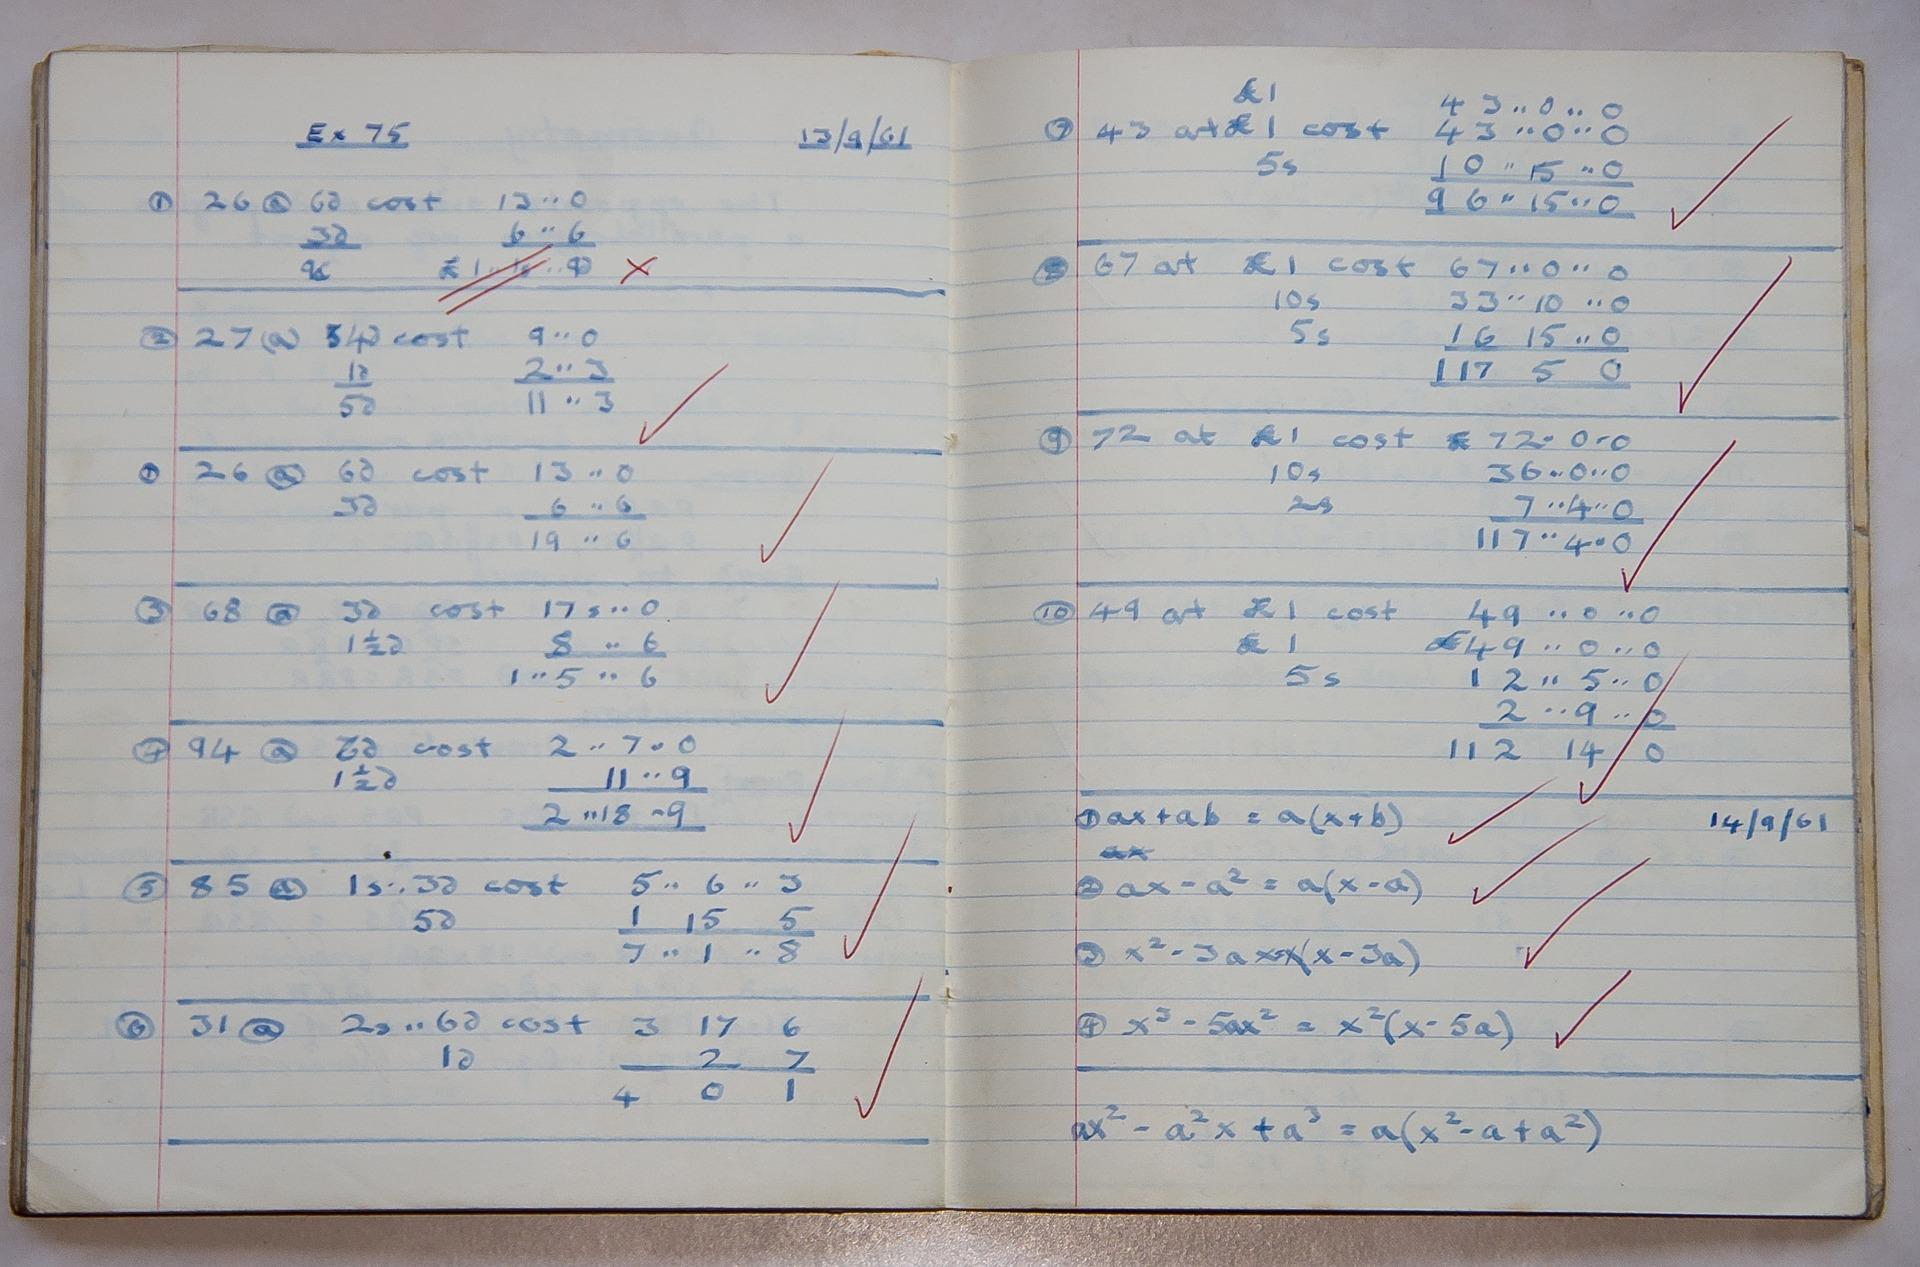 Ex 75 13/9/61
① 26 @ 6d cost 13 .. 0
3d 6 .. 6
9d
② 27 @ 4d cost 9 .. 0
1d 2 .. 3
5d 11 .. 3
① 26 @ 6d cost 13 .. 0
3d 6 .. 6
19 .. 6
③ 68 @ 3d cost 17s .. 0
1½d 8 .. 6
1 .. 5 .. 6
④ 94 @ 6d cost 2 .. 7 . 0
1½d 11 .. 9
2 .. 18 - 9
⑤ 85 @ 1s .. 3d cost 5 .. 6 .. 3
5d 1 15 5
7 .. 1 .. 8
⑥ 31 @ 2s .. 6d cost 3 17 6
1d 2 7
4 0 1
£1 43 .. 0 .. 0
⑦ 43 at £1 cost 43 .. 0 .. 0
5s 10 .. 15 .. 0
96 .. 15 .. 0
⑧ 67 at £1 cost 67 .. 0 .. 0
10s 33 .. 10 .. 0
5s 16 15 .. 0
117 5 0
⑨ 72 at £1 cost £ 72 . 0 - 0
10s 36 .. 0 .. 0
2s 7 .. 4 .. 0
117 .. 4 . 0
⑩ 49 at £1 cost 49 .. 0 .. 0
£1 £49 .. 0 .. 0
5s 12 .. 5 .. 0
2 .. 9 .. 0
112 14 0
① ax + ab = a(x + b) 14/9/61
ax
② ax - a² = a(x - a)
③ x² - 3ax = x(x - 3a)
④ x³ - 5ax² = x²(x - 5a)
ax² - a²x + a³ = a(x² - a + a²)